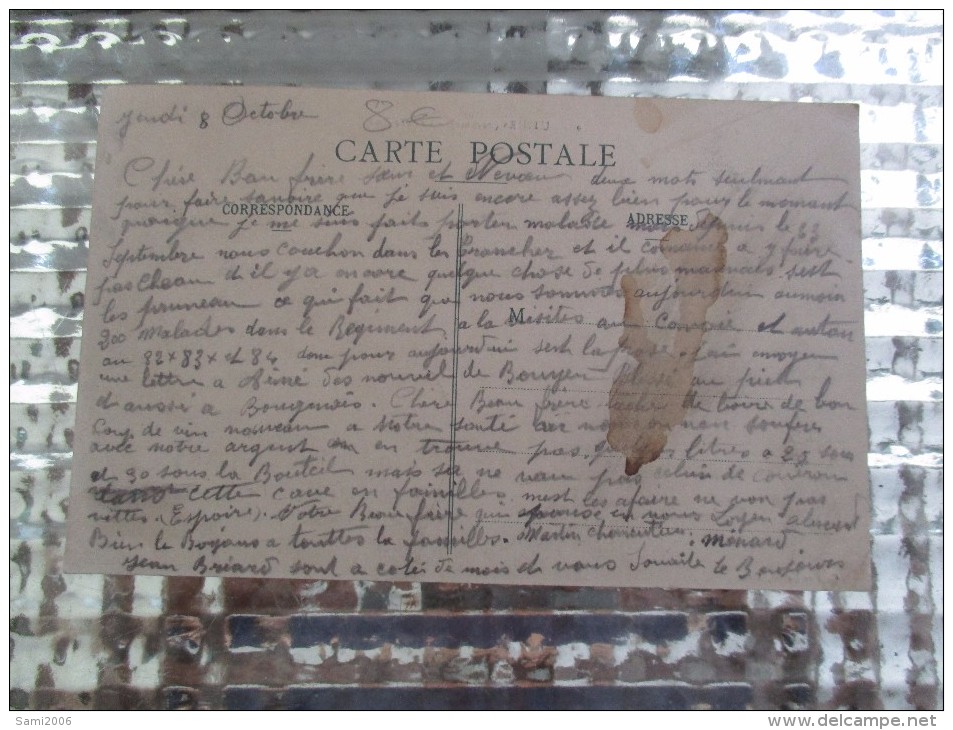 Jeudi 8 Octobre
CARTE POSTALE
Chère Bau frère Sœur et Neveau deux mots seulmant
pour faire savoire que je suis encore assez bien pour le momant
CORRESPONDANCE
ADRESSE
quoique je me suis fait porter malade mois depuis le 23
Septembre nous couchon dans les trancher et il comance a y faire
pas Cheau et il y a encore quelque chose de plus mauvais sest
les pruneau ce qui fait que nous sommes aujourdui aumoin
300 Malades dans le Régiment a la Visites au Convoie et autan
M
au 82 × 83 × et 84 donc pour aujourdui sest la pose.
une lettre a Aimé des nouvel de Bouyer Blessé au pied
et aussi a Bougnois. Chere Beau frère tacher de boire de bon
Cou de vin nouveau a Notre santé car nous on nen soufre
avec notre argent on en trouve pas les litres a 25 sous
et 30 sous la Bouteil mais sa ne vau pas celui de
cette cave en familles mest les afaire ne von pas
vittes. (Espoire). Votre Beau frère qui pense en vous Loyen
Bien le Bonjour a touttes la familles. Martin charentier. Ménard
Jean Briard sont a coté de mois et vous Souaite le Bonjours
Sami2006
www.delcampe.net